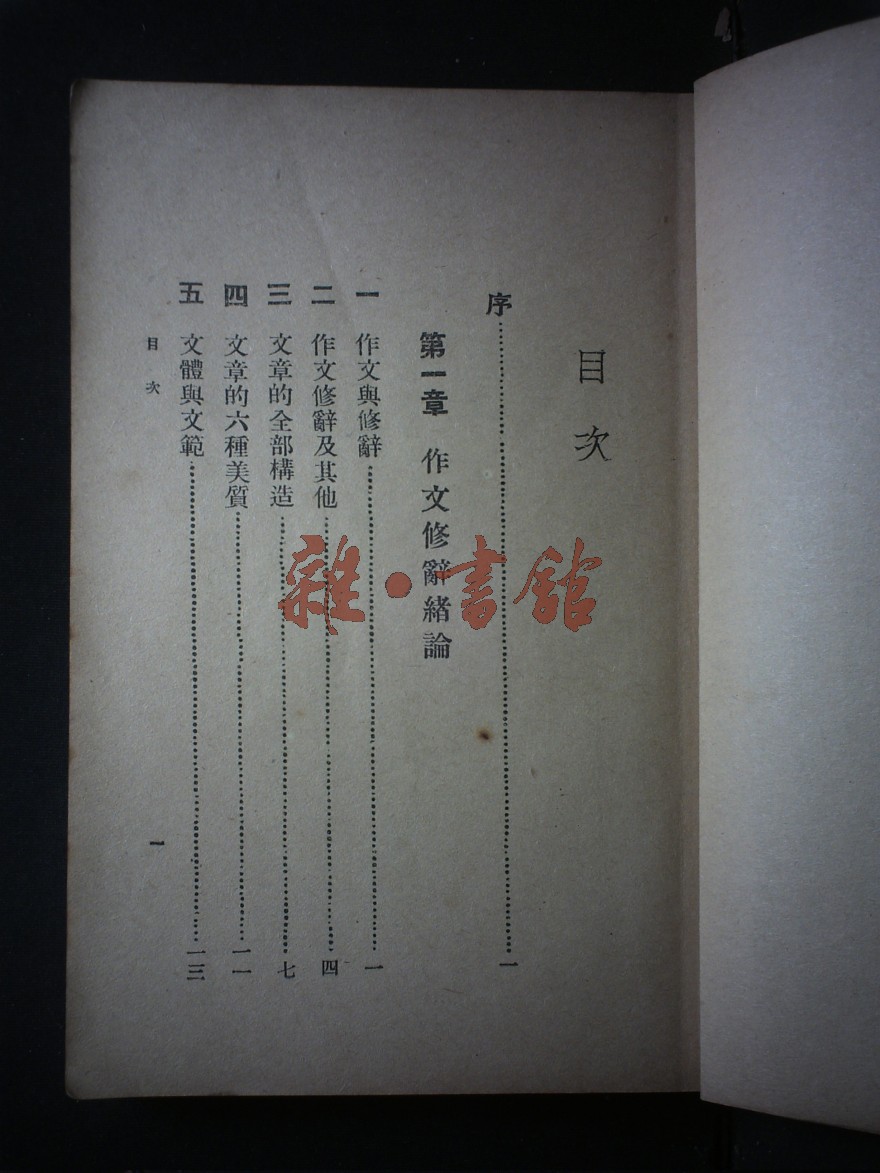 目次
序……一
第一章 作文修辭緒論
一 作文與修辭……一
二 作文修辭及其他……四
三 文章的全部構造……七
四 文章的六種美質……一一
五 文體與文範……一三
目次 一
雜·書館